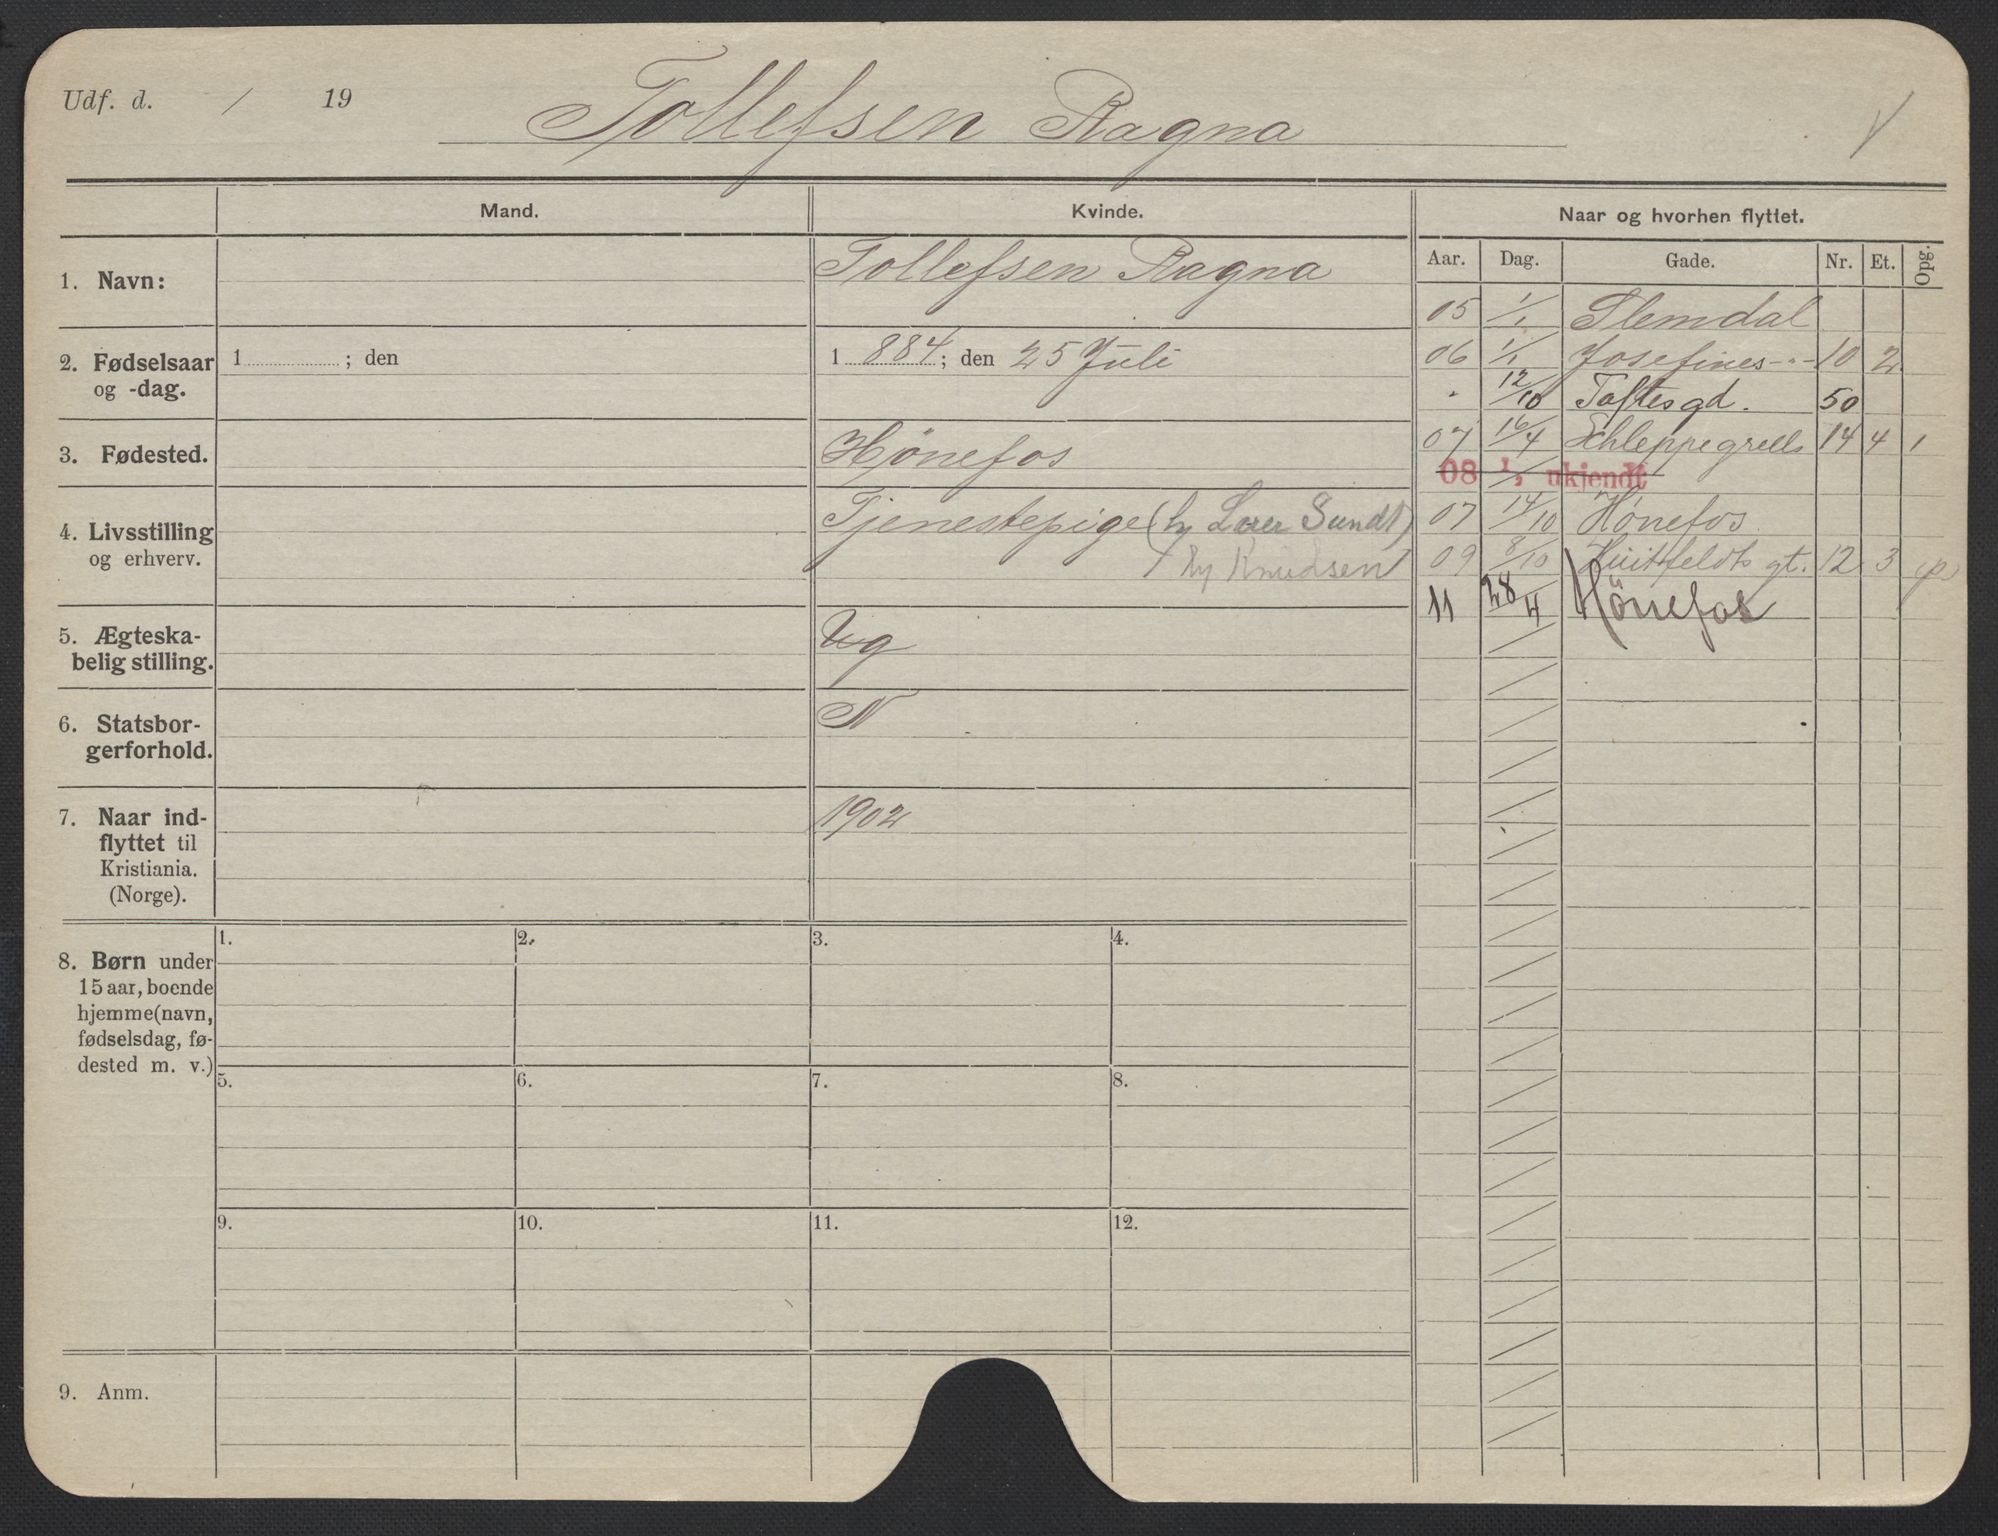 Udf. d. / 19
Tollefsen Ragna
Mand.
Kvinde.
Naar og hvorhen flyttet.
Aar. Dag. Gade. Nr. Et. Opg.
1. Navn:
Tollefsen Ragna
2. Fødselsaar
og -dag.
1 ; den
1 884; den 25 Juli
3. Fødested.
Hønefos
4. Livsstilling
og erhverv.
Tjenestepige (hj Sundt)
hj Knudsen
5. Ægteska-
belig stilling.
Ug
6. Statsbor-
gerforhold.
N
7. Naar ind-
flyttet til
Kristiania.
(Norge).
1902
05 1/1 Slemdal
06 1/1 Josefines-"- 10 2
" 12/10 Toftesgd. 50
07 16/4 Schleppegrells 14 4 1
08 1/1 ukjendt
07 14/10 Hønefos
09 8/10 Huitfeldts gt. 12 3
11 28/4 Hönefos
8. Børn under
15 aar, boende
hjemme (navn,
fødselsdag, fø-
dested m. v.)
1. 2. 3. 4.
5. 6. 7. 8.
9. 10. 11. 12.
9. Anm.